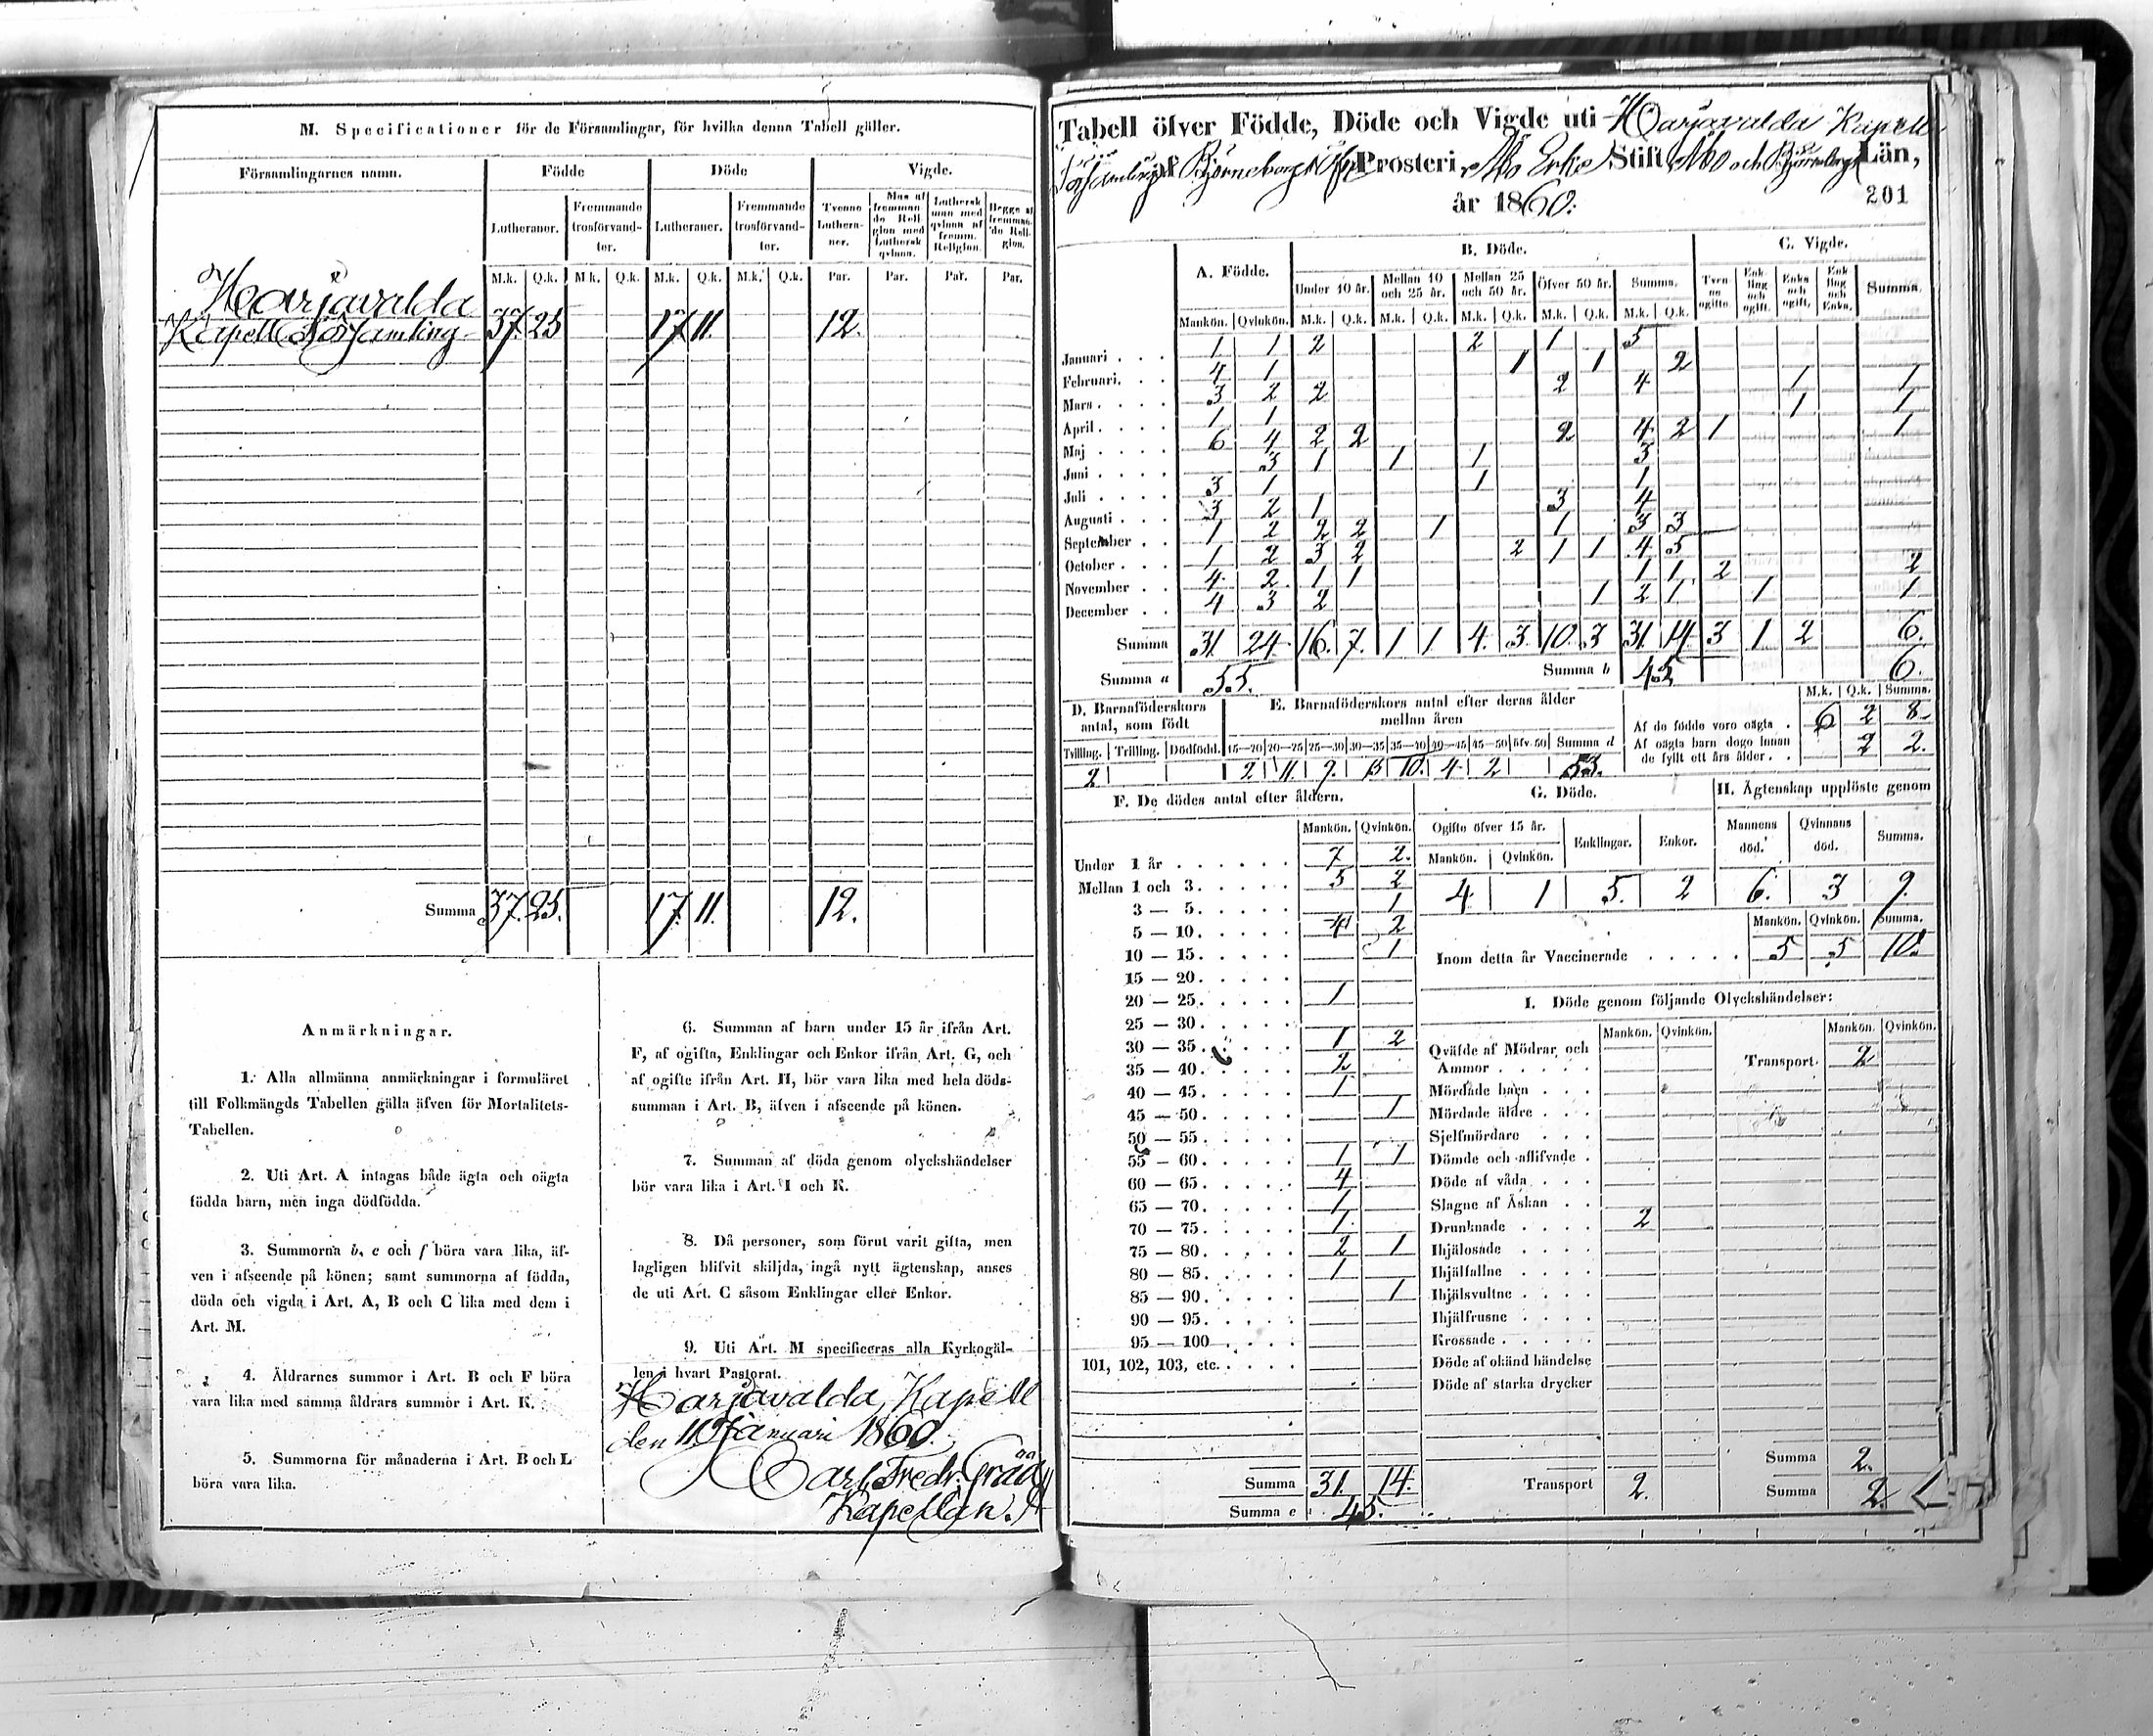 M. Specificationer för de Församlingar, för hvilka denna Tabell gäller.
Församlingarnes namn. Födde Döde Vigde.
Lutheraner. Fremmande trosförvandter. Lutheraner. Fremmande trosförvandter. Tvenne Lutheraner. Man af fremmande Religion med Luthersk qvinna. Luthersk man med qvinna af fremm. Religion. Begge af fremmande Religion.
M.k. Q.k. M.k. Q.k. M.k. Q.k. M.k. Q.k. Par. Par. Par. Par.
Harjavalda
Kapell Församling 37. 25 17 11. 12.
Summa 37. 25. 17. 11. 12.
Anmärkningar.
1. Alla allmänna anmärkningar i formuläret
till Folkmängds Tabellen gälla äfven för Mortalitets-
Tabellen.
2. Uti Art. A intagas både ägta och oägta
födda barn, men inga dödfödda.
3. Summorna b, e och f böra vara lika, äf-
ven i afseende på könen; samt summorna af födda,
döda och vigda i Art. A, B och C lika med dem i
Art. M.
4. Åldrarnes summor i Art. B och F böra
vara lika med samma åldrars summor i Art. K.
5. Summorna för månaderna i Art. B och L
böra vara lika.
6. Summan af barn under 15 år ifrån Art.
F, af ogifta, Enklingar och Enkor ifrån Art. G, och
af ogifte ifrån Art. H, bör vara lika med hela döds-
summan i Art. B, äfven i afseende på könen.
7. Summan af döda genom olyckshändelser
bör vara lika i Art. I och K.
8. Då personer, som förut varit gifta, men
lagligen blifvit skiljda, ingå nytt ägtenskap, anses
de uti Art. C såsom Enklingar eller Enkor.
9. Uti Art. M specificeras alla Kyrkogäl-
len i hvart Pastorat.
Harjavalda Kapell
den 11 Januari 1860.
Carl Fredr.
Kapellan.
Tabell öfver Födde, Döde och Vigde uti Harjavalda Kapell
Församling af Björneborgs Prosteri, Åbo Erke Stift, Åbo och Björneborgs Län,
år 1860.
201
A. Födde. B. Döde. C. Vigde.
Under 10 år. Mellan 10 och 25 år. Mellan 25 och 50 år. Öfver 50 år. Summa. Tvenne ogifte. Enkling och ogift. Enka och ogift. Enkling och Enka. Summa.
Mankön. Qvinkön. M.k. Q.k. M.k. Q.k. M.k. Q.k. M.k. Q.k. M.k. Q.k.
Januari 1 1 2 2 1 5
Februari 4 1 1 1 2
Mars 3 2 2 2 4 1 1
April 1 1 1 1
Maj 6 4 2 2 2 4 2 1 1
Juni 3 1 1 1 3
Juli 3 1 1 1
Augusti 3 2 1 3 4
September 1 2 2 2 1 1 3 3
October 1 2 3 2 2 1 1 4 5
November 4 2 1 1 1 1 2 2
December 4 3 2 1 2 1 1 1
Summa 31. 24 16. 7. 1 1 4. 3. 10. 3 31. 14. 3 1 2 6.
Summa a 55. Summa b 45 6.
D. Barnaföderskors antal, som födt
Tvilling. Trilling. Dödfödd.
2
E. Barnaföderskors antal efter deras ålder mellan åren
15—20 20—25 25—30 30—35 35—40 40—45 45—50 öfv. 50 Summa d
2. 11. 9. 15 10. 4 2 53.
M.k. Q.k. Summa.
Af de födde voro oägta 6 2 8
Af oägta barn dogo innan de fyllt ett års ålder 2 2.
F. De dödes antal efter åldern.
Mankön. Qvinkön.
Under 1 år 7 2.
Mellan 1 och 3 5 2
3 — 5 1
5 — 10 4 2
10 — 15 1
15 — 20
20 — 25 1
25 — 30
30 — 35 1 2
35 — 40 2
40 — 45 1
45 — 50 1
50 — 55
55 — 60 1 1
60 — 65 4
65 — 70 1
70 — 75 1
75 — 80 2 1
80 — 85 1
85 — 90 1
90 — 95
95 — 100
101, 102, 103, etc.
Summa 31. 14.
Summa e 45.
G. Döde.
Ogifte öfver 15 år. Enklingar. Enkor.
Mankön. Qvinkön.
4 1 5. 2
H. Ägtenskap upplöste genom
Mannens död. Qvinnans död. Summa.
6. 3 9.
Mankön. Qvinkön. Summa.
Inom detta år Vaccinerade 5 5 10.
I. Döde genom följande Olyckshändelser:
Mankön. Qvinkön. Mankön. Qvinkön.
Qväfde af Mödrar och Ammor Transport 2
Mördade barn
Mördade äldre
Sjelfmördare
Dömde och aflifvade
Döde af våda
Slagne af Åskan
Drunknade 2
Ihjälosade
Ihjälfallne
Ihjälsvultne
Ihjälfrusne
Krossade
Döde af okänd händelse
Döde af starka drycker
Summa 2.
Transport 2. Summa 2.